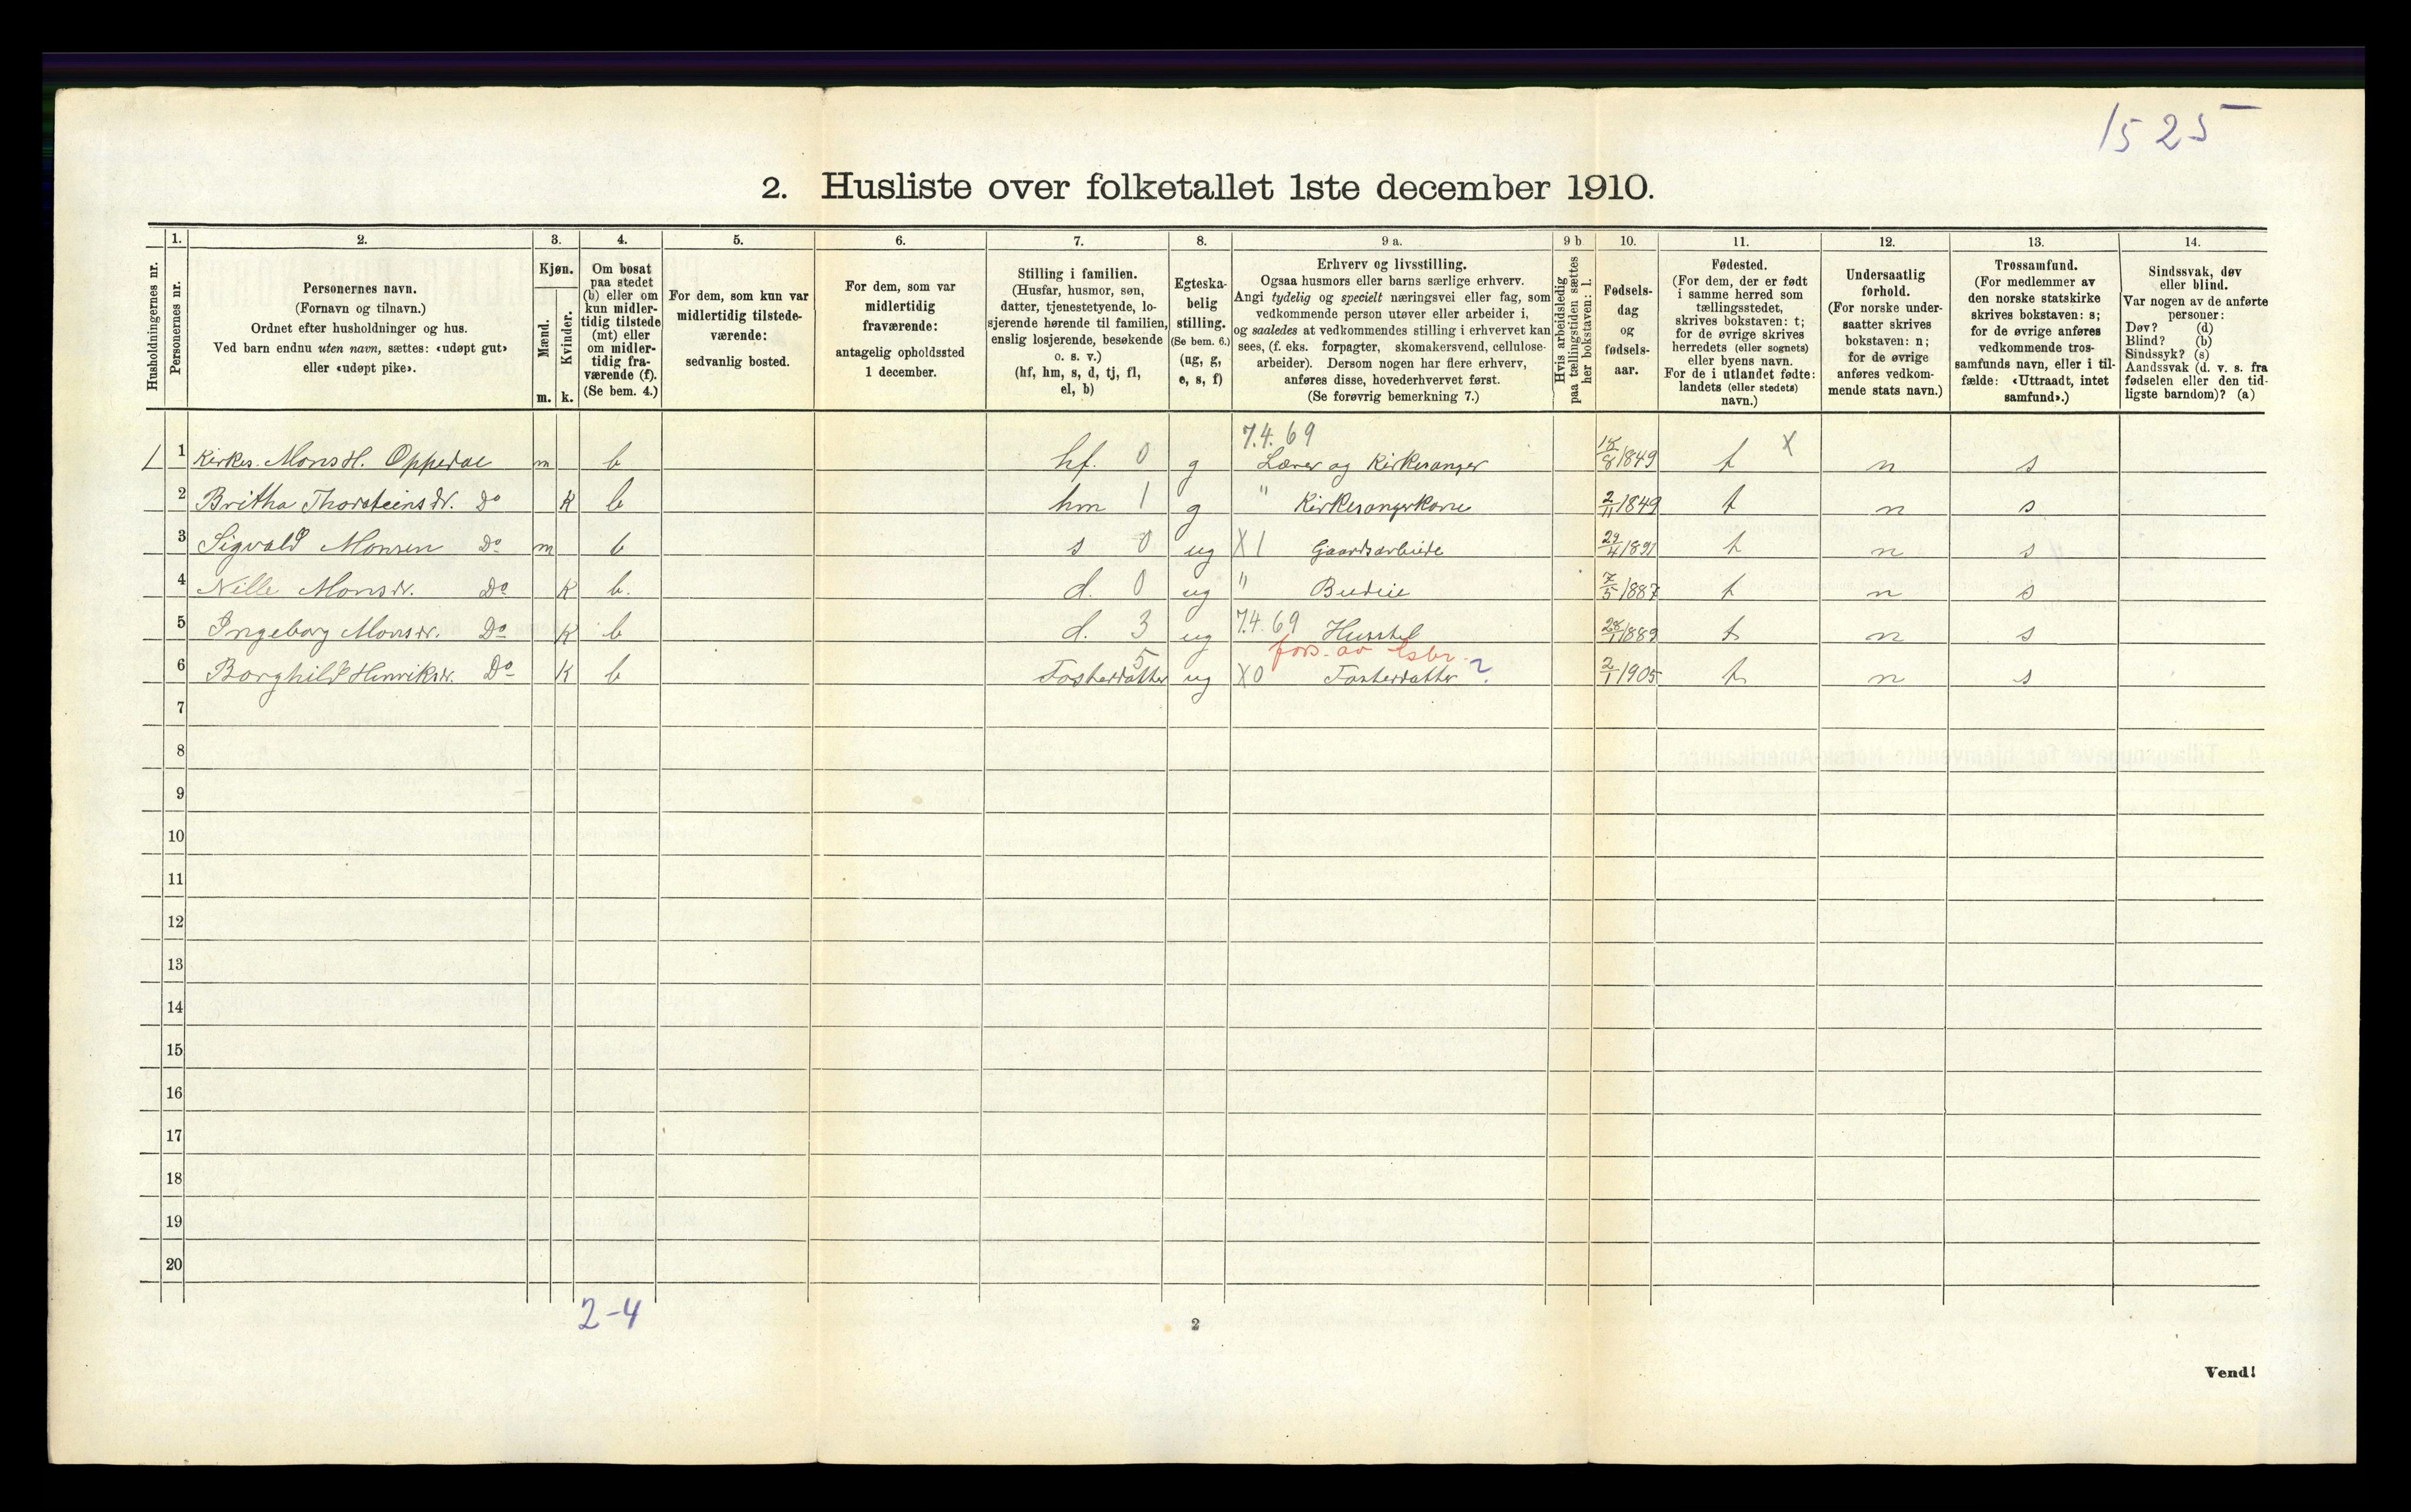 1525
2. Husliste over folketallet 1ste december 1910.
Husholdningernes nr.
1.
Personernes nr.
2.
Personernes navn.
(Fornavn og tilnavn.)
Ordnet efter husholdninger og hus.
Ved barn endnu uten navn, sættes: «udøpt gut»
eller «udøpt pike».
3.
Kjøn.
Mænd.
Kvinder.
m. k.
4.
Om bosat
paa stedet
(b) eller om
kun midler-
tidig tilstede
(mt) eller
om midler-
tidig fra-
værende (f).
(Se bem. 4.)
5.
For dem, som kun var
midlertidig tilstede-
værende:
sedvanlig bosted.
6.
For dem, som var
midlertidig
fraværende:
antagelig opholdssted
1 december.
7.
Stilling i familien.
(Husfar, husmor, søn,
datter, tjenestetyende, lo-
sjerende hørende til familien,
enslig losjerende, besøkende
o. s. v.)
(hf, hm, s, d, tj, fl,
el, b)
8.
Egteska-
belig
stilling.
(Se bem. 6.)
(ug, g,
e, s, f)
9 a.
Erhverv og livsstilling.
Ogsaa husmors eller barns særlige erhverv.
Angi tydelig og specielt næringsvei eller fag, som
vedkommende person utøver eller arbeider i,
og saaledes at vedkommendes stilling i erhvervet kan
sees, (f. eks. forpagter, skomakersvend, cellulose-
arbeider). Dersom nogen har flere erhverv,
anføres disse, hovederhvervet først.
(Se forøvrig bemerkning 7.)
9 b
Hvis arbeidsledig
paa tællingstiden sættes
her bokstaven: l.
10.
Fødsels-
dag
og
fødsels-
aar.
11.
Fødested.
(For dem, der er født
i samme herred som
tællingsstedet,
skrives bokstaven: t;
for de øvrige skrives
herredets (eller sognets)
eller byens navn.
For de i utlandet fødte:
landets (eller stedets)
navn.)
12.
Undersaatlig
forhold.
(For norske under-
saatter skrives
bokstaven: n;
for de øvrige
anføres vedkom-
mende stats navn.)
13.
Trossamfund.
(For medlemmer av
den norske statskirke
skrives bokstaven: s;
for de øvrige anføres
vedkommende tros-
samfunds navn, eller i til-
fælde: «Uttraadt, intet
samfund».)
14.
Sindssvak, døv
eller blind.
Var nogen av de anførte
personer:
Døv? (d)
Blind? (b)
Sindssyk? (s)
Aandssvak (d. v. s. fra
fødselen eller den tid-
ligste barndom)? (a)
7.4.69
1 1 Kirkes. Mons H. Oppedal m b hf. 0 g Lærer og Kirkesanger 18/8 1849 t X n s
2 Britha Thorsteinsdr. Do K b hm 1 g " Kirkesangerkone 2/11 1849 t n s
3 Sigvald Monsen Do m b s 0 ug X 1 Gaardsarbeide 29/4 1891 t n s
4 Nille Monsdr. Do K b. d. 0 ug " Budeie 7/5 1887 t n s
5 Ingeborg Monsdr. Do K b d. 3 ug 7.4.69 Husstel 28/1 1889 t n s
fors. av
6 Borghild Henriksdr. Do K b Fosterdatter 5 ug X0 Fosterdatter ? 2/1 1905 t n s
7
8
9
10
11
12
13
14
15
16
17
18
19
20
2-4
2
Vend!